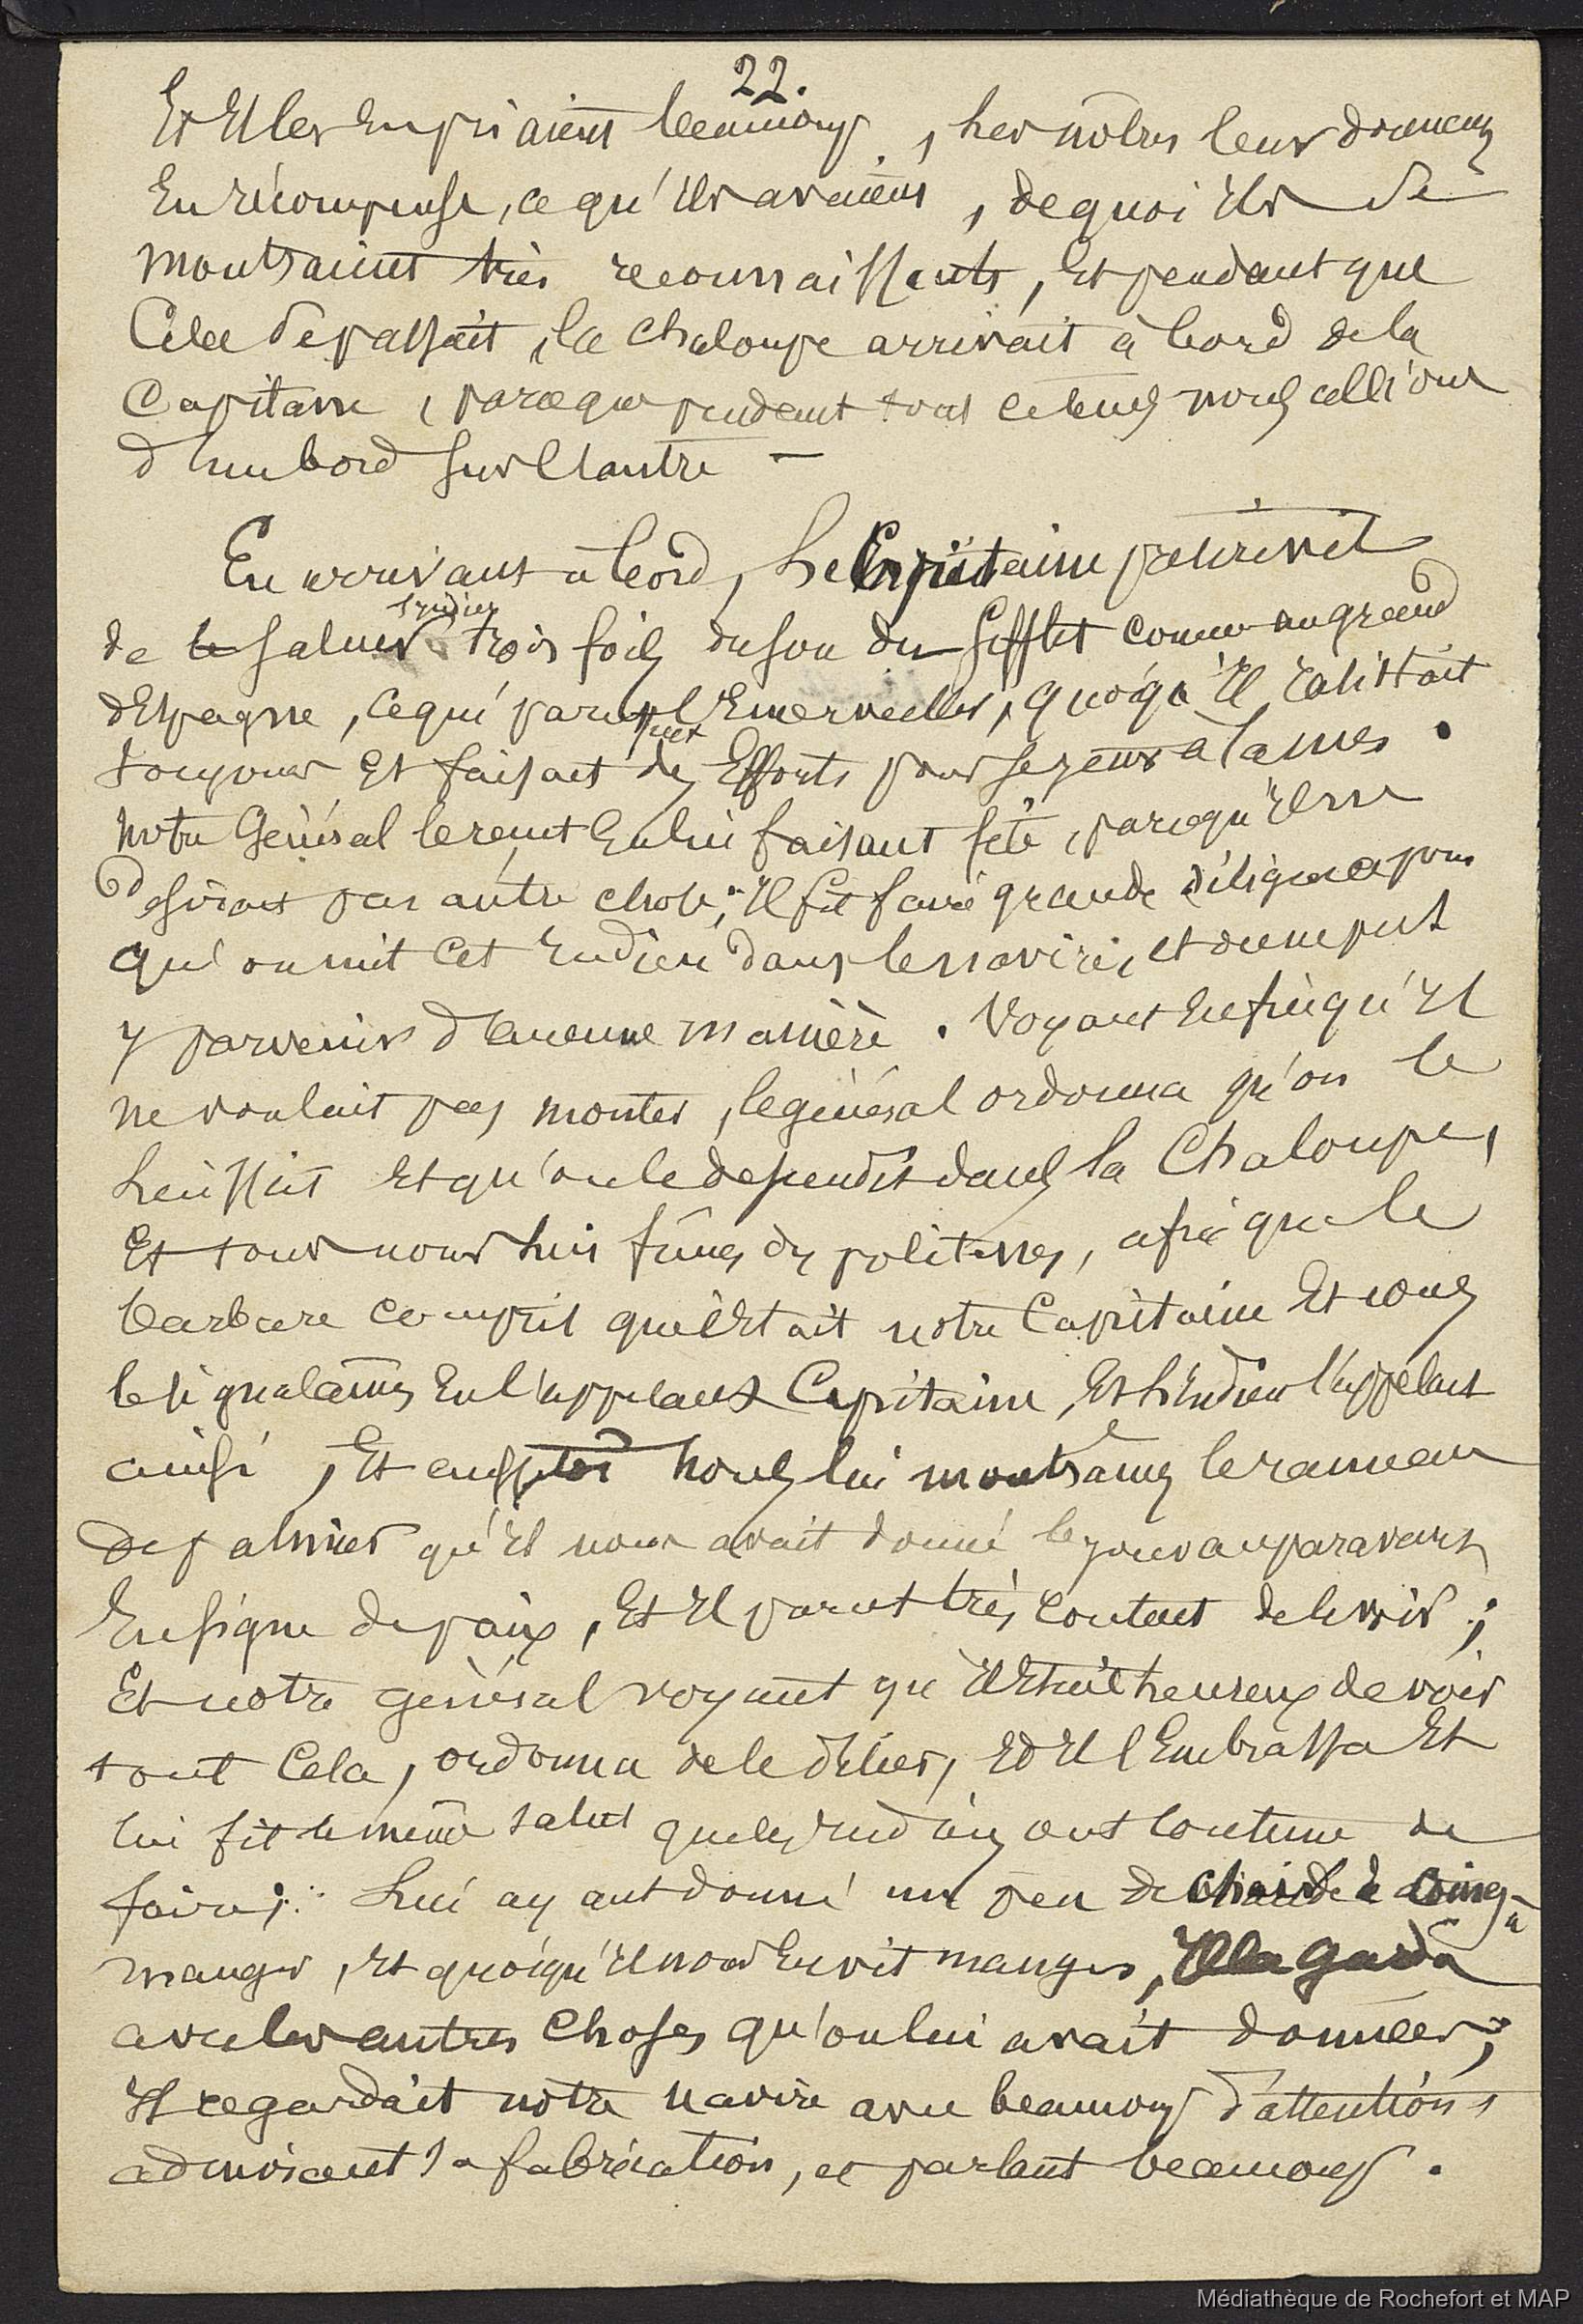 22.
Et Il les en priaient beaucoup, les nôtres leur donnent
En récompense, ce qu'Ils avaient, de quoi Ils se
montraient très reconnaissants, Et pendant que
Cela se passait, la chaloupe arrivait à bord de la
Capitane, parceque pendant tout ce tems nous allions
d'un bord sur l'autre –
En arrivant à bord, Le Capitaine prévint
de le saluer l'Indien trois fois du son du sifflet comme un grand
d'Espagne, ce qui parut l'Emerveiller, quoiqu'Il résistait
toujours Et faisait des Efforts pour se jeter à la mer.
Notre Général le reçut En lui faisant fête, parcequ'Il ne
desirait pas autre chose; Il fit faire grande diligence pour
qu'on mit cet Indien dans le navire, et on ne put
y parvenir d'aucune manière. Voyant Enfin qu'Il
ne voulait pas monter, le général ordonna qu'on le
laissât Et qu'on le descendit dans la Chaloupe,
Et tous nous lui fîmes des politesses, afin que le
barbare comprit que c'Etait notre Capitaine Et nous
le signalâmes En l'appelant Capitaine, Et l'Indien l'appelait
ainsi, Et aussitôt nous lui montrâmes le rameau
de palmier qu'Il nous avait donné le jour auparavant
En signe de paix, Et Il parut très content de le voir;
Et notre général voyant qu'Il Etait heureux de voir
tout Cela, ordonna de le délier, Et Il l'Embrassa Et
lui fit le même salut que les Indiens ont coutume de
faire; Lui ayant donné un peu de chair de coings à
manger, Et quoiqu'Il nous En vit manger, Il la garda
avec les autres choses qu'on lui avait données;
Il regardait notre navire avec beaucoup d'attention,
admirant sa fabrication, et parlant beaucoup.
Médiathèque de Rochefort et MAP